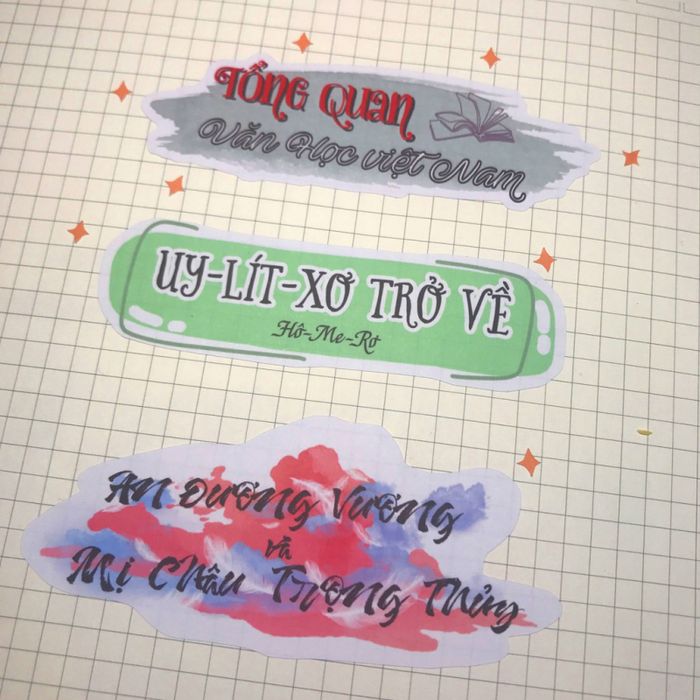 Tổng Quan
Văn Học việt Nam
UY-LÍT-XƠ TRỞ VỀ
Hô-Me-Rơ
An Dương Vương
và
Mị Châu Trọng Thủy